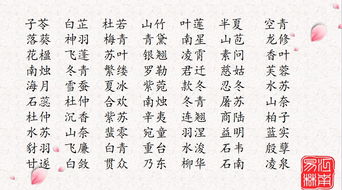 子苓 白芷 杜若 山竹 叶莲 半夏 空青
落葵 神羽 梅青 青黛 南星 山芭 龙修
花楹 飞蓬 苏叶 银翘 凌霄 素问 香叶
南烛 冬青 繁缕 罗勒 君迁 慈姑 芙蓉
海月 雪蚕 夏冰 紫菀 款冬 忍冬 水苏
石蕊 杜仲 合欢 南烛 冬青 屠苏 山奈
杜仲 沉香 紫苏 辛夷 连翘 商陆 柏子
水苏 山奈 蜚零 宛童 羽涅 益明 蓝实
豺羽 飞廉 白青 重台 水浚 石韦 殷孽
甘遂 白敛 贯众 乃东 柳华 石南 凌泉